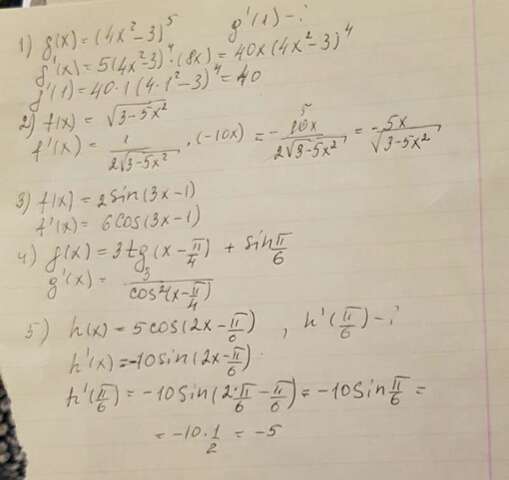 1) g(x) = (4x² - 3)⁵ g'(1) - ?
g'(x) = 5(4x² - 3)⁴ · (8x) = 40x(4x² - 3)⁴
g'(1) = 40 · 1 (4 · 1² - 3)⁴ = 40
2) f(x) = √(3 - 5x²)
f'(x) = 1/(2√(3 - 5x²)) · (-10x) = - 10x/(2√(3 - 5x²)) = - 5x/√(3 - 5x²)
3) f(x) = 2 sin(3x - 1)
f'(x) = 6 cos(3x - 1)
4) g(x) = 3 tg(x - π/4) + sin π/6
g'(x) = 3/cos²(x - π/4)
5) h(x) = 5 cos(2x - π/6), h'(π/6) - ?
h'(x) = -10 sin(2x - π/6)
h'(π/6) = -10 sin(2 · π/6 - π/6) = -10 sin π/6 =
= -10 · 1/2 = -5